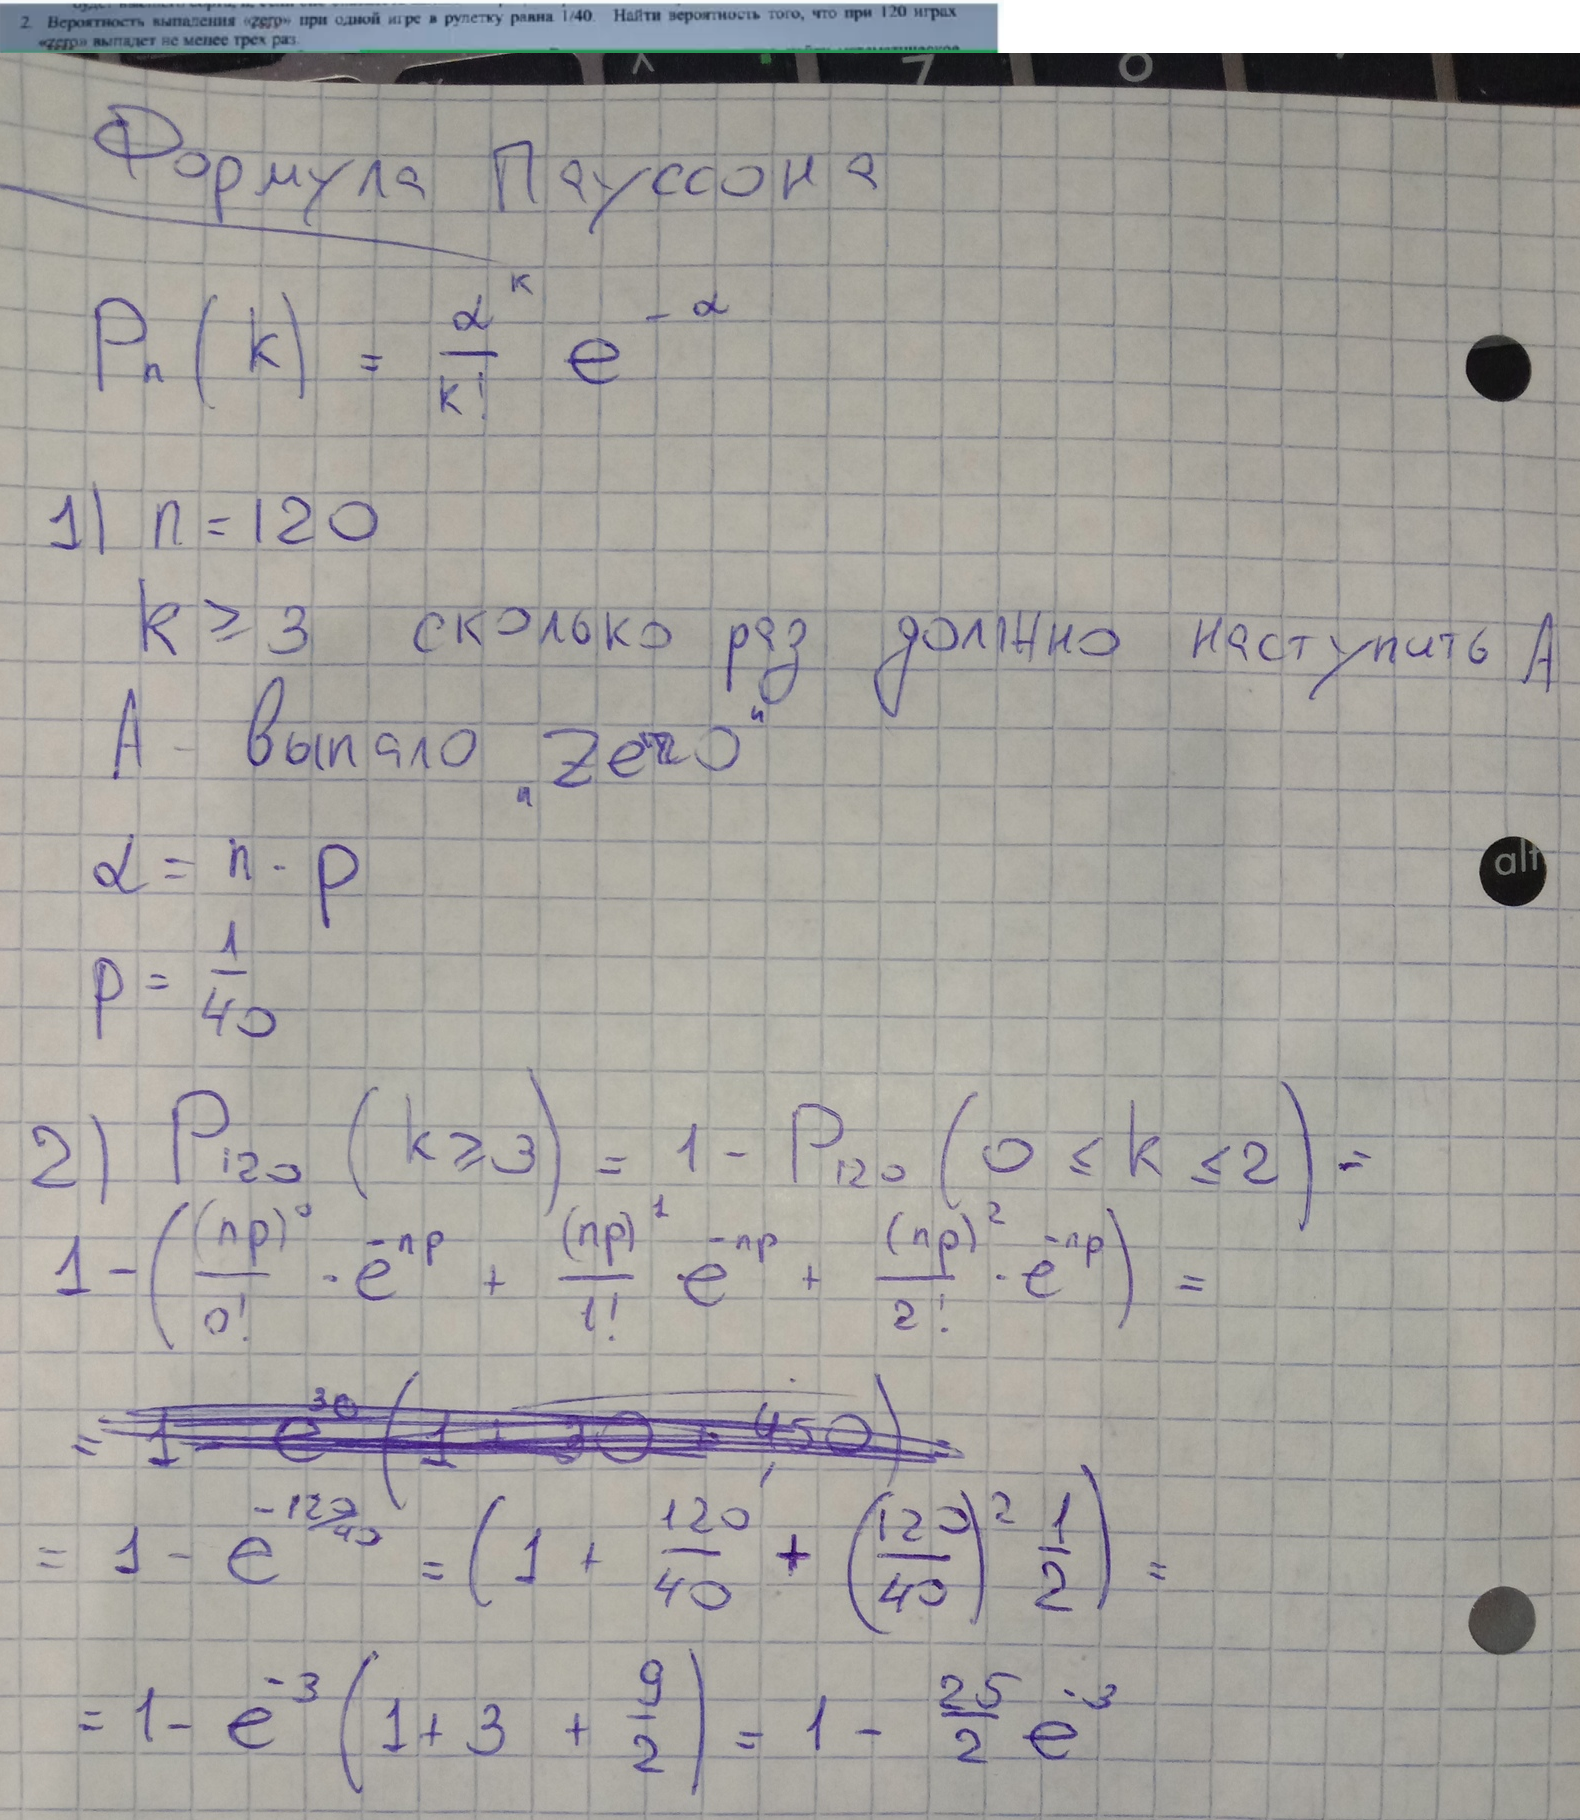 2. Вероятность выпадения «zero» при одной игре в рулетку равна 1/40. Найти вероятность того, что при 120 играх
«zero» выпадет не менее трех раз.
7 0
Формула Пауссона
Pₙ(k) = α^k/k! e^(-α)
1) n = 120
k ≥ 3 сколько раз должно наступить A
A - выпало „Zero"
α = n · p
p = 1/40
alt
2) P₁₂₀ (k ≥ 3) = 1 - P₁₂₀ (0 ≤ k ≤ 2) =
1 - ((np)^0/0! · e^(-np) + (np)^1/1! e^(-np) + (np)^2/2! · e^(-np)) =
= 1 - e^30 (1 + 30 + 450) =
= 1 - e^(-120/40) = (1 + 120/40 + (120/40)^2 1/2) =
= 1 - e^(-3) (1 + 3 + 9/2) = 1 - 25/2 e^(-3)